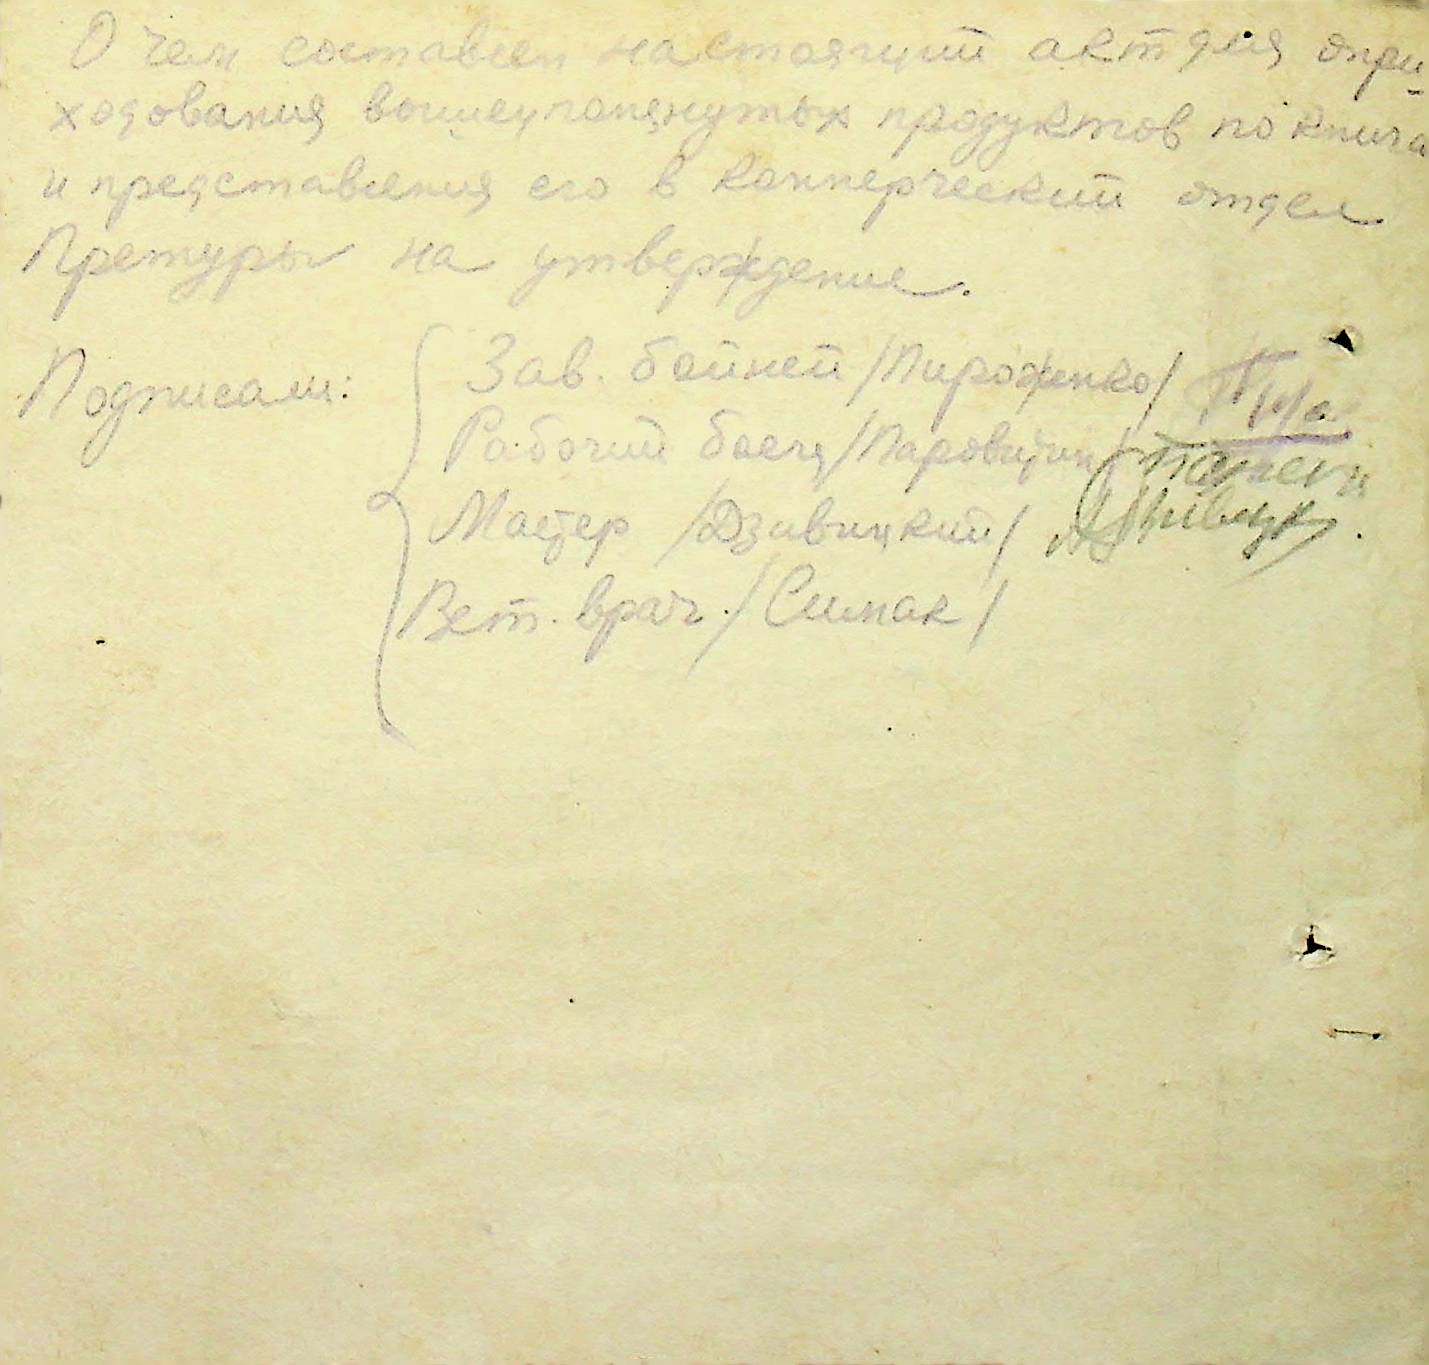 О чем составлен настоящий акт для опри-
ходования вышеупомянутых продуктов по книга
и представления его в коммерческий отдел
Претуры на утверждение.
Подписали:
Зав. бойней /Пироженко/
Рабочий боец /
Мастер /Дзивицкий/
Вет. врач. /Симак/